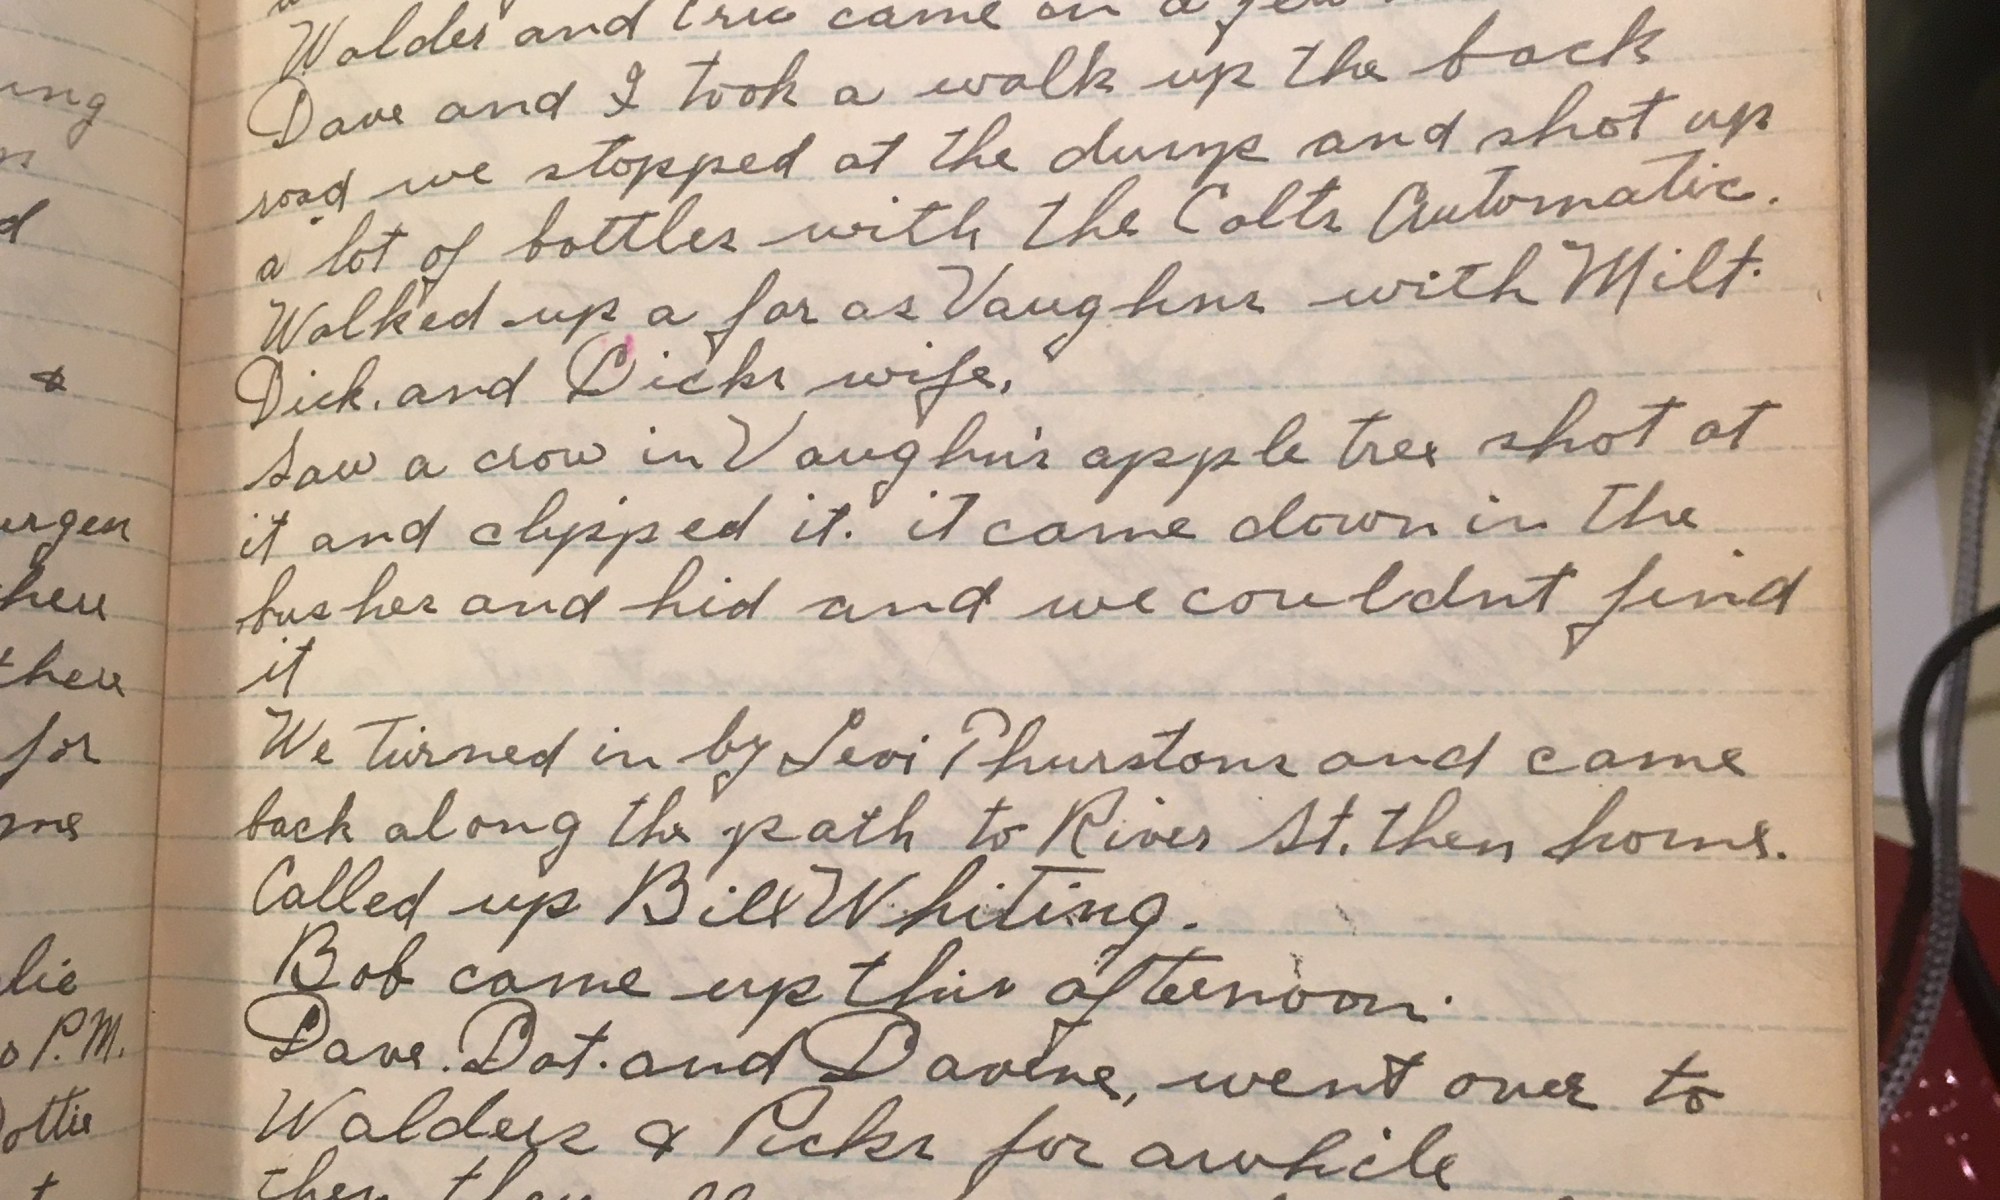 ing
d
&
urgen
here
there
for
me
lie
P.M.
Dottie
Walder and came on a few
Dave and I took a walk up the back
road we stopped at the dump and shot up
a lot of bottles with the Colts Automatic.
Walked up a far as Vaughns with Milt.
Dick. and Dicks wife.
Saw a crow in Vaughn's apple tree shot at
it and clipped it. it came down in the
bushes and hid and we couldnt find
it
We turned in by Levi Thurstons and came
back along the path to River St. then home.
Called up Bill Whiting.
Bob came up this afternoon.
Dave. Dot. and Davene, went over to
Walders & Picks for awhile
then they